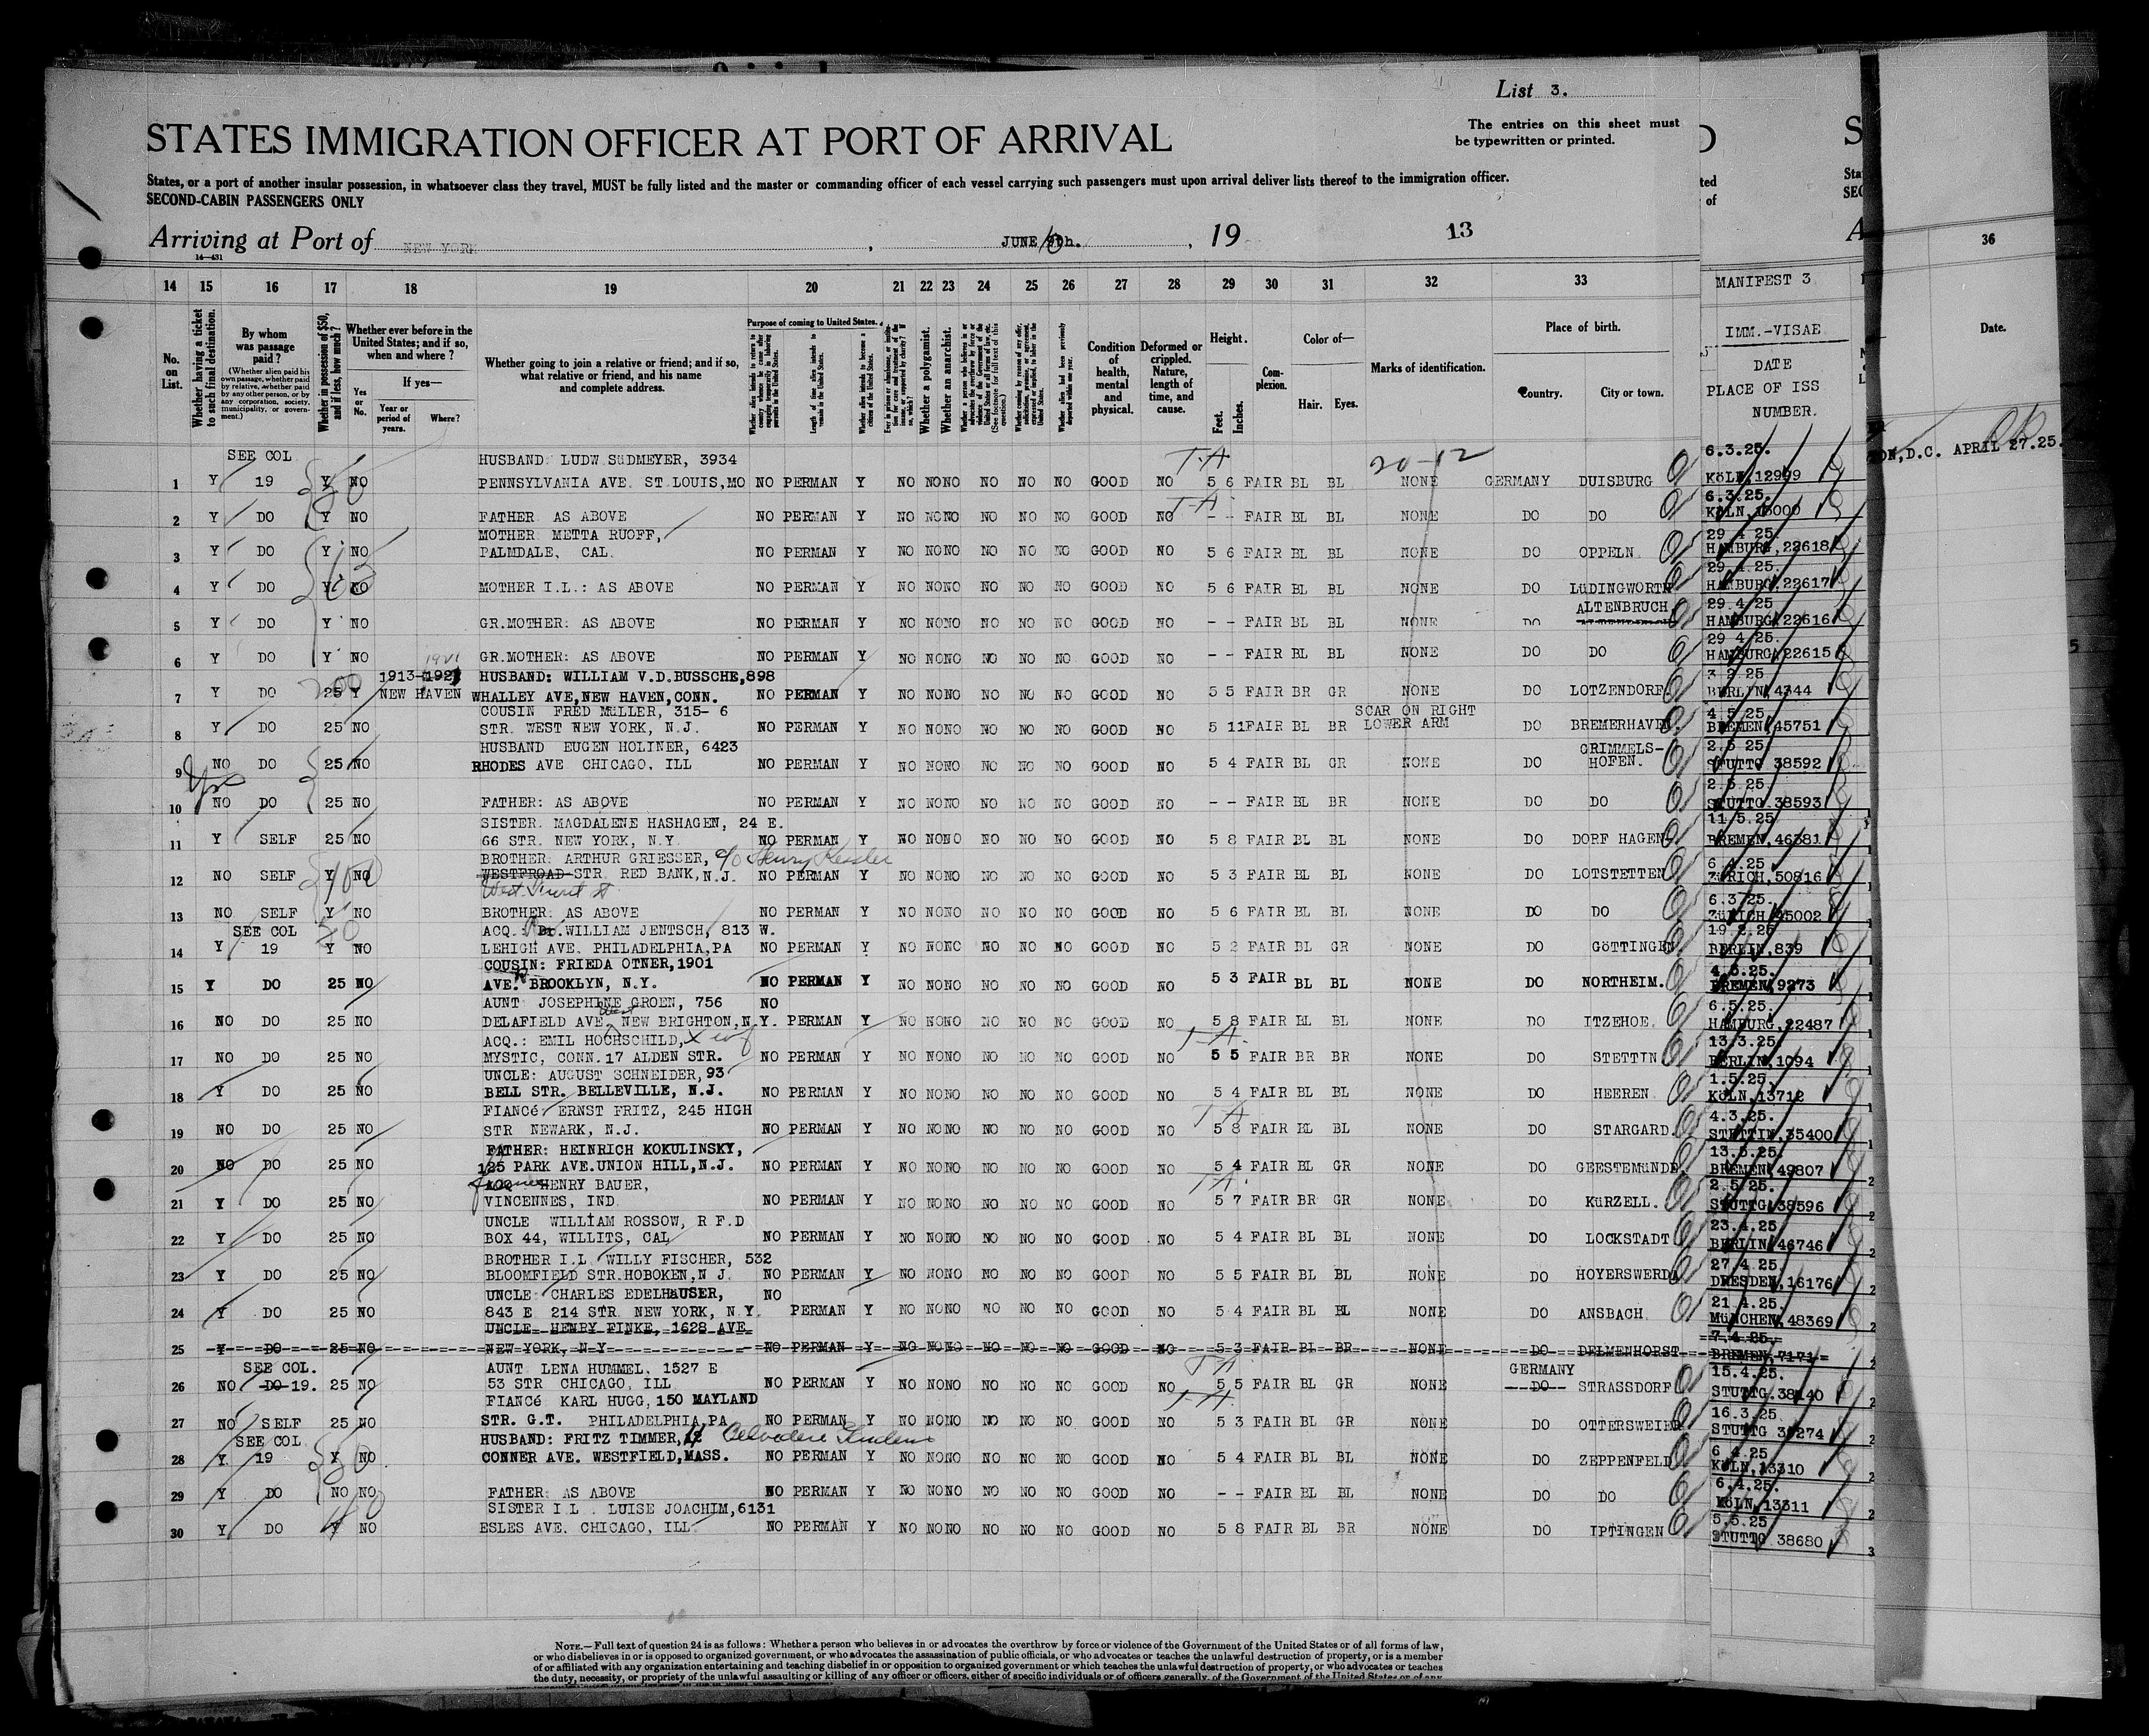 List 3.
STATES IMMIGRATION OFFICER AT PORT OF ARRIVAL
The entries on this sheet must
be typewritten or printed.
States, or a port of another insular possession, in whatsoever class they travel, MUST be fully listed and the master or commanding officer of each vessel carrying such passengers must upon arrival deliver lists thereof to the immigration officer.
SECOND-CABIN PASSENGERS ONLY
Arriving at Port of NEW YORK, JUNE 10th., 19 13
14—431
14 15 16 17 18 19 20 21 22 23 24 25 26 27 28 29 30 31 32 33 MANIFEST 3 36
No. on List.
Whether having a ticket to such final destination.
By whom was passage paid?
(Whether alien paid his own passage, whether paid by relative, whether paid by any other person, or by any corporation, society, municipality, or government.)
Whether in possession of $50, and if less, how much?
Whether ever before in the United States; and if so, when and where?
Yes or No.
If yes—
Year or period of years.
Where?
Whether going to join a relative or friend; and if so, what relative or friend, and his name and complete address.
Purpose of coming to United States.
Length of time alien intends to remain in the United States.
Whether alien intends to become a citizen of the United States.
Whether a polygamist.
Whether an anarchist.
Condition of health, mental and physical.
Deformed or crippled. Nature, length of time, and cause.
Height.
Feet. Inches.
Complexion.
Color of—
Hair. Eyes.
Marks of identification.
Place of birth.
Country. City or town.
IMM.-VISAE
DATE
PLACE OF ISS
NUMBER.
Date.
ON,D.C. APRIL 27.25.
SEE COL HUSBAND: LUDW.SüDMEYER, 3934 T-A 20-12 6.3.25.
1 Y 19 Y NO PENNSYLVANIA AVE. ST.LOUIS,MO NO PERMAN Y NO NO NO NO NO NO GOOD NO 5 6 FAIR BL BL NONE GERMANY DUISBURG KöLN,12999
T-A 6.3.25.
2 Y DO Y NO FATHER AS ABOVE NO PERMAN Y NO NO NO NO NO NO GOOD NO - - FAIR BL BL NONE DO DO KöLN,13000
MOTHER METTA RUOFF, 29 4 25.
3 Y DO Y NO PALMDALE, CAL. NO PERMAN Y NO NO NO NO NO NO GOOD NO 5 6 FAIR BL BL NONE DO OPPELN HAMBURG,22618
29.4.25.
4 Y DO Y NO MOTHER I.L.: AS ABOVE NO PERMAN Y NO NO NO NO NO NO GOOD NO 5 6 FAIR BL BL NONE DO LüDINGWORTH HAMBURG,22617
ALTENBRUCH 29.4.25
5 Y DO Y NO GR.MOTHER: AS ABOVE NO PERMAN Y NO NO NO NO NO NO GOOD NO - - FAIR BL BL NONE DO HAMBURG,22616
1921 29 4 25.
6 Y DO Y NO GR.MOTHER: AS ABOVE NO PERMAN Y NO NO NO NO NO NO GOOD NO - - FAIR BL BL NONE DO DO HAMBURG,22615
1913-1921 HUSBAND: WILLIAM V.D.BUSSCHE,898 3 2 25.
7 Y DO 200 25 Y NEW HAVEN WHALLEY AVE,NEW HAVEN,CONN. NO PERMAN Y NO NO NO NO NO NO GOOD NO 5 5 FAIR BR GR NONE DO LOTZENDORF. BERLIN,4344
COUSIN FRED MüLLER, 315- 6 SCAR ON RIGHT 4.5.25
8 Y DO 25 NO STR. WEST NEW YORK, N.J. NO PERMAN Y NO NO NO NO NO NO GOOD NO 5 11 FAIR BL BR LOWER ARM DO BREMERHAVEN BREMEN,45751
HUSBAND EUGEN HOLINER, 6423 GRIMMELS- 2.5 25
9 NO Yes DO 25 NO RHODES AVE CHICAGO, ILL NO PERMAN Y NO NO NO NO NO NO GOOD NO 5 4 FAIR BL GR NONE DO HOFEN. STUTTG 38592
2.5.25.
10 NO DO 25 NO FATHER: AS ABOVE NO PERMAN Y NO NO NO NO NO NO GOOD NO - - FAIR BL BR NONE DO DO STUTTG.38593
SISTER. MAGDALENE HASHAGEN, 24 E. 11.5.25
11 Y SELF 25 NO 66 STR. NEW YORK, N.Y. NO PERMAN Y NO NO NO NO NO NO GOOD NO 5 8 FAIR BL BL NONE DO DORF HAGEN. BREMEN,46381
BROTHER: ARTHUR GRIESSER, c/o Henry Kessler 6.4.25
12 NO SELF Y NO WESTFROAD STR. RED BANK,N.J. NO PERMAN Y NO NO NO NO NO NO GOOD NO 5 3 FAIR BL BL NONE DO LOTSTETTEN ZüRICH,50816
6.3.25.
13 NO SELF Y NO BROTHER: AS ABOVE NO PERMAN Y NO NO NO NO NO NO GOOD NO 5 6 FAIR BL BL NONE DO DO ZüRICH,45002
SEE COL ACQ.: Dr.WILLIAM JENTSCH, 813 W. 19.2.25
14 Y 19 Y NO LEHIGH AVE. PHILADELPHIA,PA NO PERMAN Y NO NO NO NO NO NO GOOD NO 5 2 FAIR BL GR NONE DO GöTTINGEN BERLIN,839
COUSIN: FRIEDA OTNER,1901 4.5.25.
15 Y DO 25 NO AVE. BROOKLYN, N.Y. NO PERMAN Y NO NO NO NO NO NO GOOD NO 5 3 FAIR BL BL NONE DO NORTHEIM. BREMEN,9273
AUNT JOSEPHINE GROEN, 756 NO 6.5.25.
16 NO DO 25 NO DELAFIELD AVE. West NEW BRIGHTON,N.Y. PERMAN Y NO NO NO NO NO NO GOOD NO 5 8 FAIR BL BL NONE DO ITZEHOE. HAMBURG,22487
ACQ.: EMIL HOCHSCHILD, T-A. 13.3.25.
17 NO DO 25 NO MYSTIC, CONN.17 ALDEN STR. NO PERMAN Y NO NO NO NO NO NO GOOD NO 5 5 FAIR BR BR NONE DO STETTIN BERLIN,1094
UNCLE: AUGUST SCHNEIDER,93 1.5.25.
18 Y DO 25 NO BELL STR. BELLEVILLE, N.J. NO PERMAN Y NO NO NO NO NO NO GOOD NO 5 4 FAIR BL BL NONE DO HEEREN KöLN,13712
FIANCé ERNST FRITZ, 245 HIGH T A 4.3.25.
19 NO DO 25 NO STR NEWARK, N.J. NO PERMAN Y NO NO NO NO NO NO GOOD NO 5 8 FAIR BL BL NONE DO STARGARD. STETTIN,35400
FATHER: HEINRICH KOKULINSKY, 13.5.25.
20 NO DO 25 NO 125 PARK AVE.UNION HILL,N.J. NO PERMAN Y NO NO NO NO NO NO GOOD NO 5 4 FAIR BL GR NONE DO GEESTEMüNDE BREMEN,49807
HENRY BAUER, T A. 2.5.25.
21 Y DO 25 NO VINCENNES, IND NO PERMAN Y NO NO NO NO NO NO GOOD NO 5 7 FAIR BR GR NONE DO KüRZELL. STUTTG,38596
UNCLE WILLIAM ROSSOW, R F.D 23.4.25
22 Y DO 25 NO BOX 44, WILLITS, CAL NO PERMAN Y NO NO NO NO NO NO GOOD NO 5 4 FAIR BL BL NONE DO LOCKSTADT BERLIN,46746
BROTHER I.L WILLY FISCHER, 532 27.4 25
23 Y DO 25 NO BLOOMFIELD STR.HOBOKEN,N J. NO PERMAN Y NO NO NO NO NO NO GOOD NO 5 5 FAIR BL BL NONE DO HOYERSWERDA DRESDEN,16176
UNCLE CHARLES EDELHAUSER, NO 21.4.25.
24 Y DO 25 NO 843 E. 214 STR. NEW YORK, N.Y. PERMAN Y NO NO NO NO NO NO GOOD NO 5 4 FAIR BL BL NONE DO ANSBACH MüNCHEN,48369
UNCLE HENRY FINKE, 1628 AVE 7.4.25.
25 Y DO 25 NO NEW YORK, N.Y NO PERMAN Y NO NO NO NO NO NO GOOD NO 5 3 FAIR BL BR NONE DO DELMENHORST BREMEN,7171
SEE COL. AUNT LENA HUMMEL, 1527 E T A GERMANY 15.4.25.
26 NO DO 19. 25 NO 53 STR CHICAGO, ILL NO PERMAN Y NO NO NO NO NO NO GOOD NO 5 5 FAIR BL GR NONE DO STRASSDORF STUTTG.38140
FIANCé KARL HUGG, 150 MAYLAND T-A. 16.3.25
27 NO SELF 25 NO STR. G.T. PHILADELPHIA,PA NO PERMAN Y NO NO NO NO NO NO GOOD NO 5 3 FAIR BL GR NONE DO OTTERSWEIER STUTTG
SEE COL HUSBAND: FRITZ TIMMER, 6.4.25
28 Y 19 Y NO CONNER AVE. WESTFIELD,MASS. NO PERMAN Y NO NO NO NO NO NO GOOD NO 5 4 FAIR BL BL NONE DO ZEPPENFELD KöLN,13310
6.4.25.
29 Y DO NO NO FATHER: AS ABOVE NO PERMAN Y NO NO NO NO NO NO GOOD NO - - FAIR BL BL NONE DO DO KöLN,13311
SISTER I L LUISE JOACHIM,6131 5.5.25
30 Y DO Y NO ESLES AVE. CHICAGO, ILL NO PERMAN Y NO NO NO NO NO NO GOOD NO 5 8 FAIR BL BR NONE DO IPTINGEN STUTTG 38680
NOTE.—Full text of question 24 is as follows: Whether a person who believes in or advocates the overthrow by force or violence of the Government of the United States or of all forms of law,
or who disbelieves in or is opposed to organized government, or who advocates the assassination of public officials, or who advocates or teaches the unlawful destruction of property, or is a member
of or affiliated with any organization entertaining and teaching disbelief in or opposition to organized government or which teaches the unlawful destruction of property, or who advocates or teaches
the duty, necessity, or propriety of the unlawful assaulting or killing of any officer or officers, either of specific individuals or of officers generally, of the Government of the United States or of any